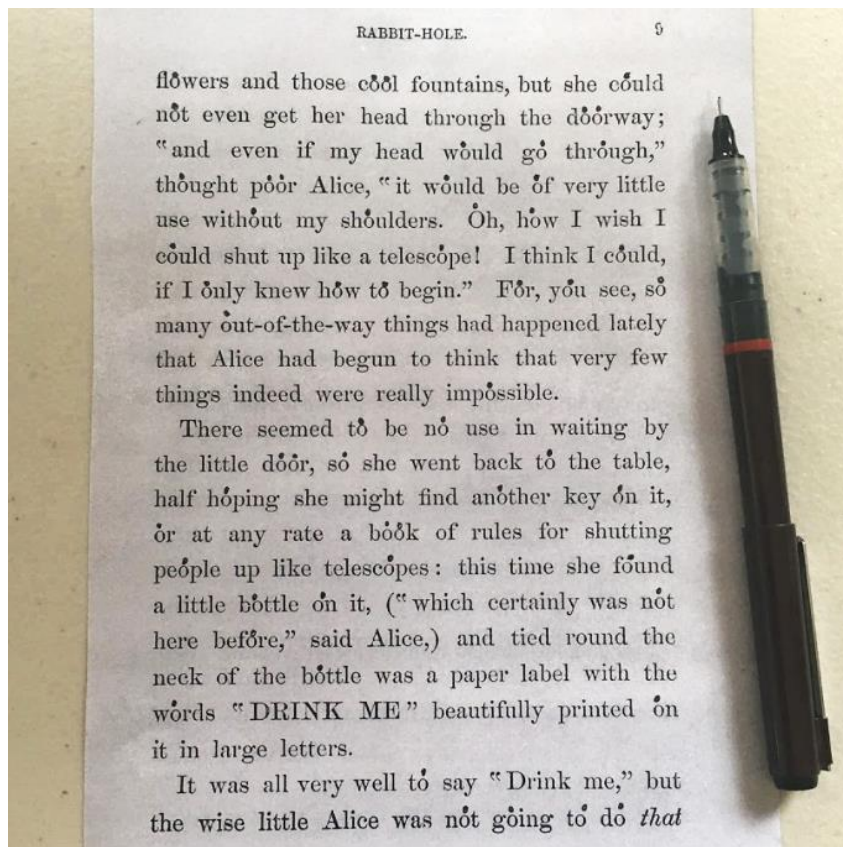 RABBIT-HOLE. 9
flowers and those cool fountains, but she could
not even get her head through the doorway;
“and even if my head would go through,”
thought poor Alice, “it would be of very little
use without my shoulders. Oh, how I wish I
could shut up like a telescope! I think I could,
if I only knew how to begin.” For, you see, so
many out-of-the-way things had happened lately
that Alice had begun to think that very few
things indeed were really impossible.
There seemed to be no use in waiting by
the little door, so she went back to the table,
half hoping she might find another key on it,
or at any rate a book of rules for shutting
people up like telescopes: this time she found
a little bottle on it, (“which certainly was not
here before,” said Alice,) and tied round the
neck of the bottle was a paper label with the
words “DRINK ME” beautifully printed on
it in large letters.
It was all very well to say “Drink me,” but
the wise little Alice was not going to do that